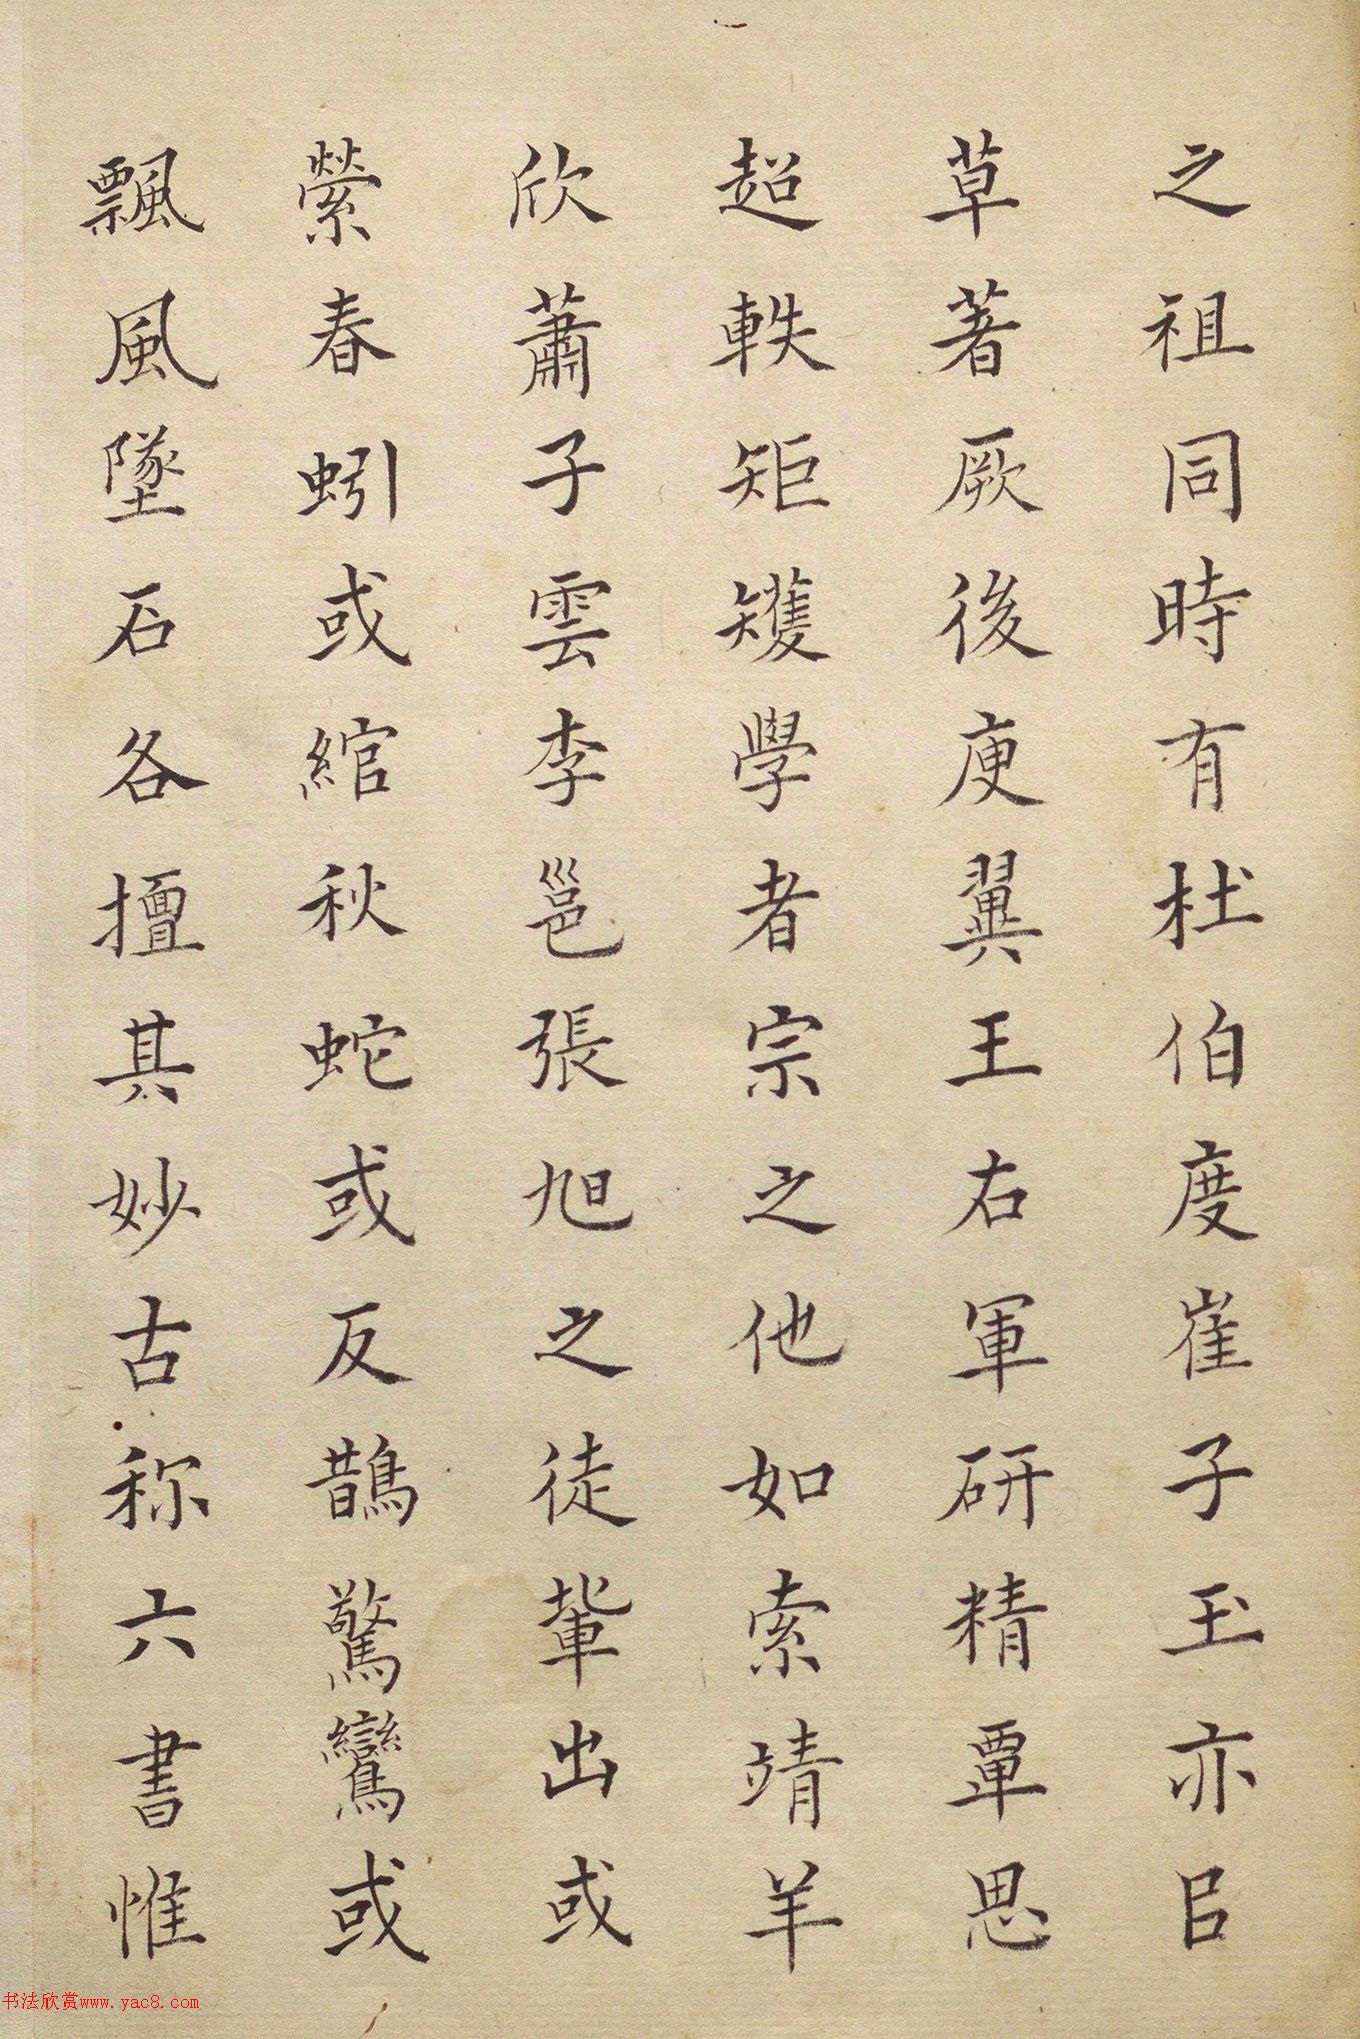 之祖同時有杜伯度崔子玉亦㠯
草著厥後庾翼王右軍研精覃思
超軼矩矱學者宗之他如索靖羊
欣蕭子雲李邕張旭之徒輩出或
縈春蚓或綰秋蛇或反鵲驚鸞或
飄風墜石各擅其妙古称六書惟
书法欣赏www.yac8.com